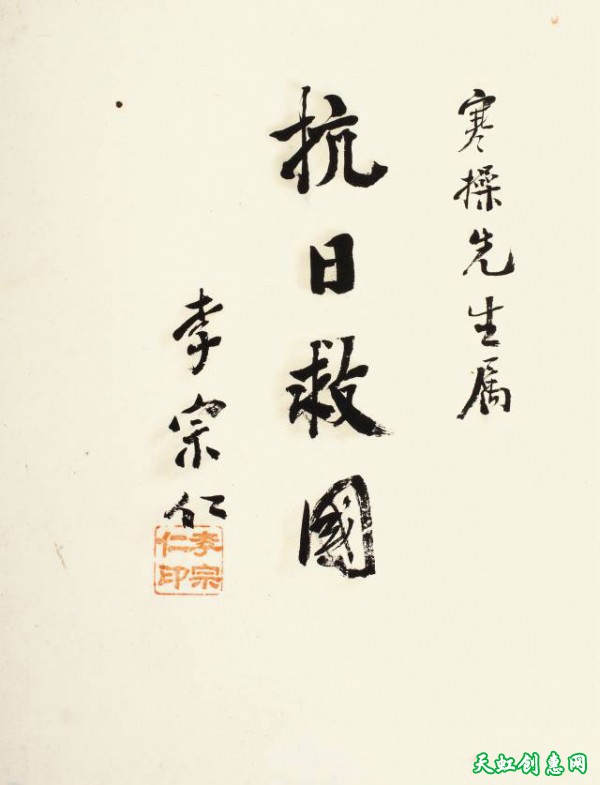 寒操先生属
抗日救國
李宗仁
李宗仁印
天虹创惠网